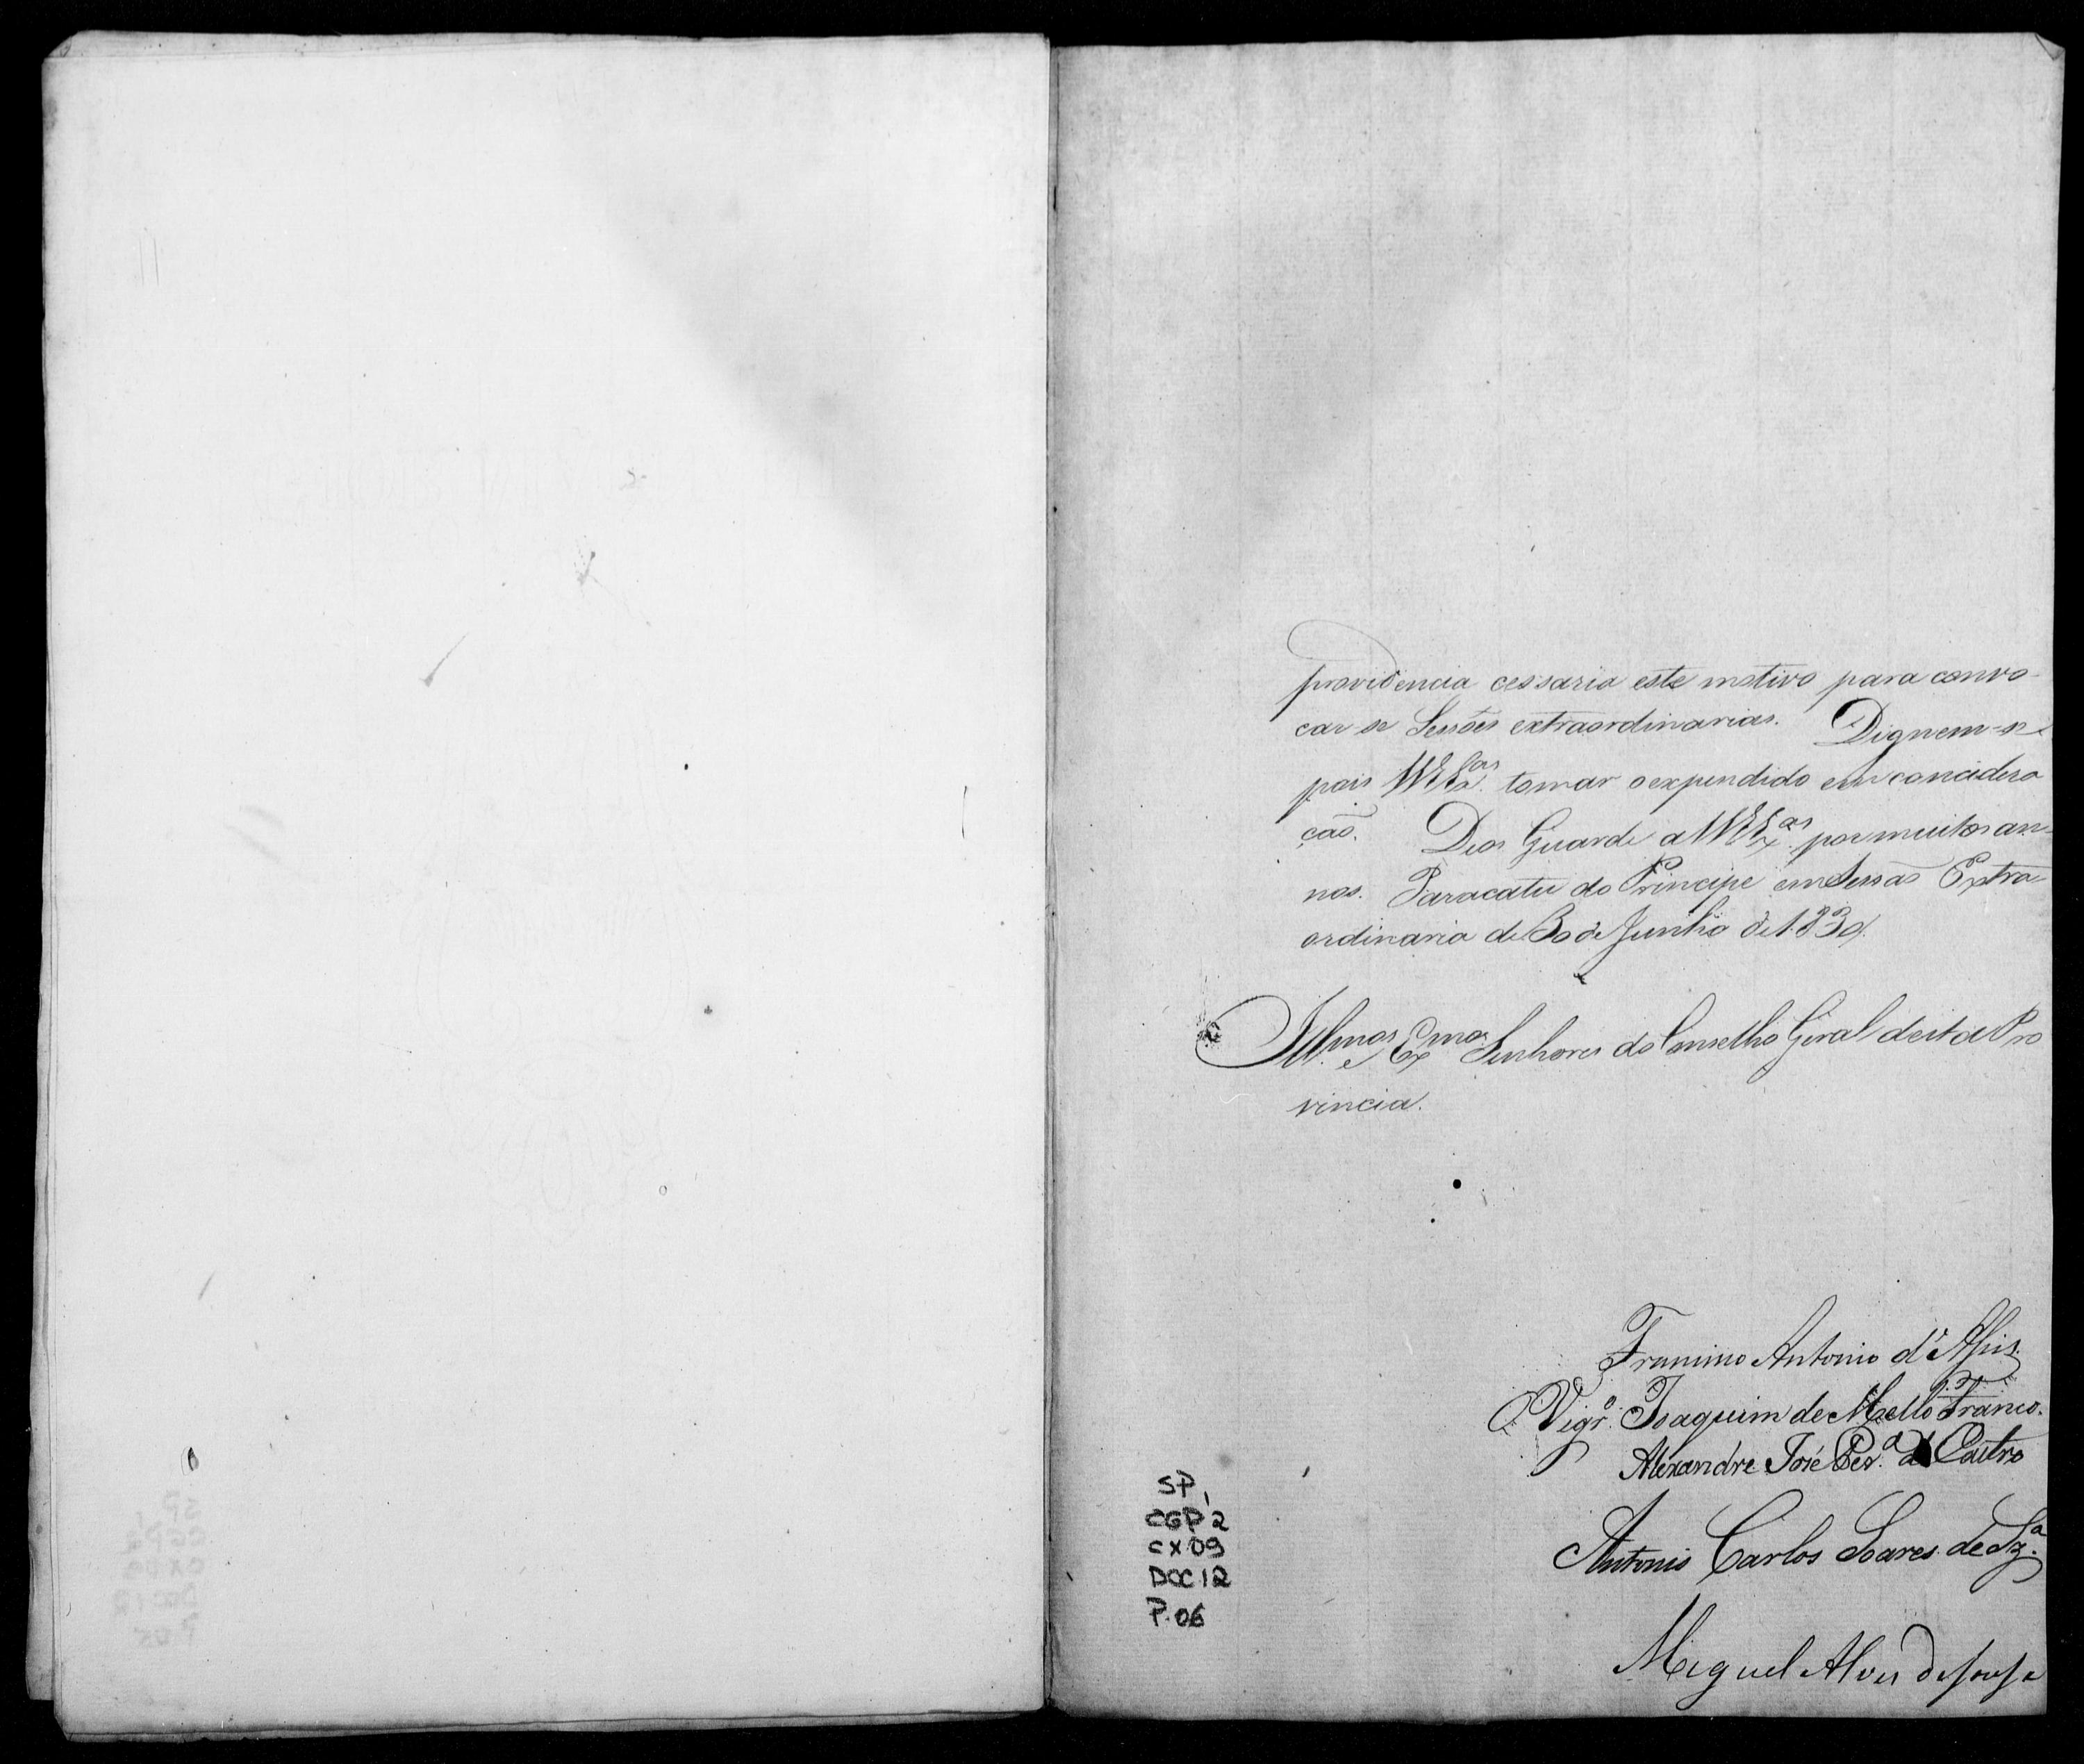 providencia cessaria este motivo para convo-
car-se Sessões extraordinarias. Dignem-se
pois VVEEx.as tomar o expendido em concidera
ção. Deos Guarde a VVEEx.as por muitos an-
nos. Paracatu do Principe em Sessão Extra-
ordinaria de 30 de Junho de 1830.
Ill.mos e Ex.mos Senhores do Conselho Geral desta Pro
vincia.
Antonio d'Assis.
O Vigr.o Joaquim de Mello Franco.
Alexandre José Per.a de Castro
Antonio Carlos Soares de Sz.a
Miguel Alves de Sousa
SP 1
CGP 2
CX 09
DOC 12
P. 06